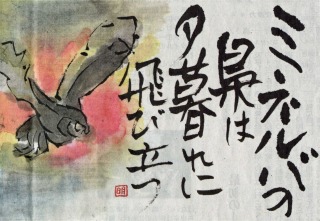 ミネルバの
梟は
夕暮れに
飛び立つ
明